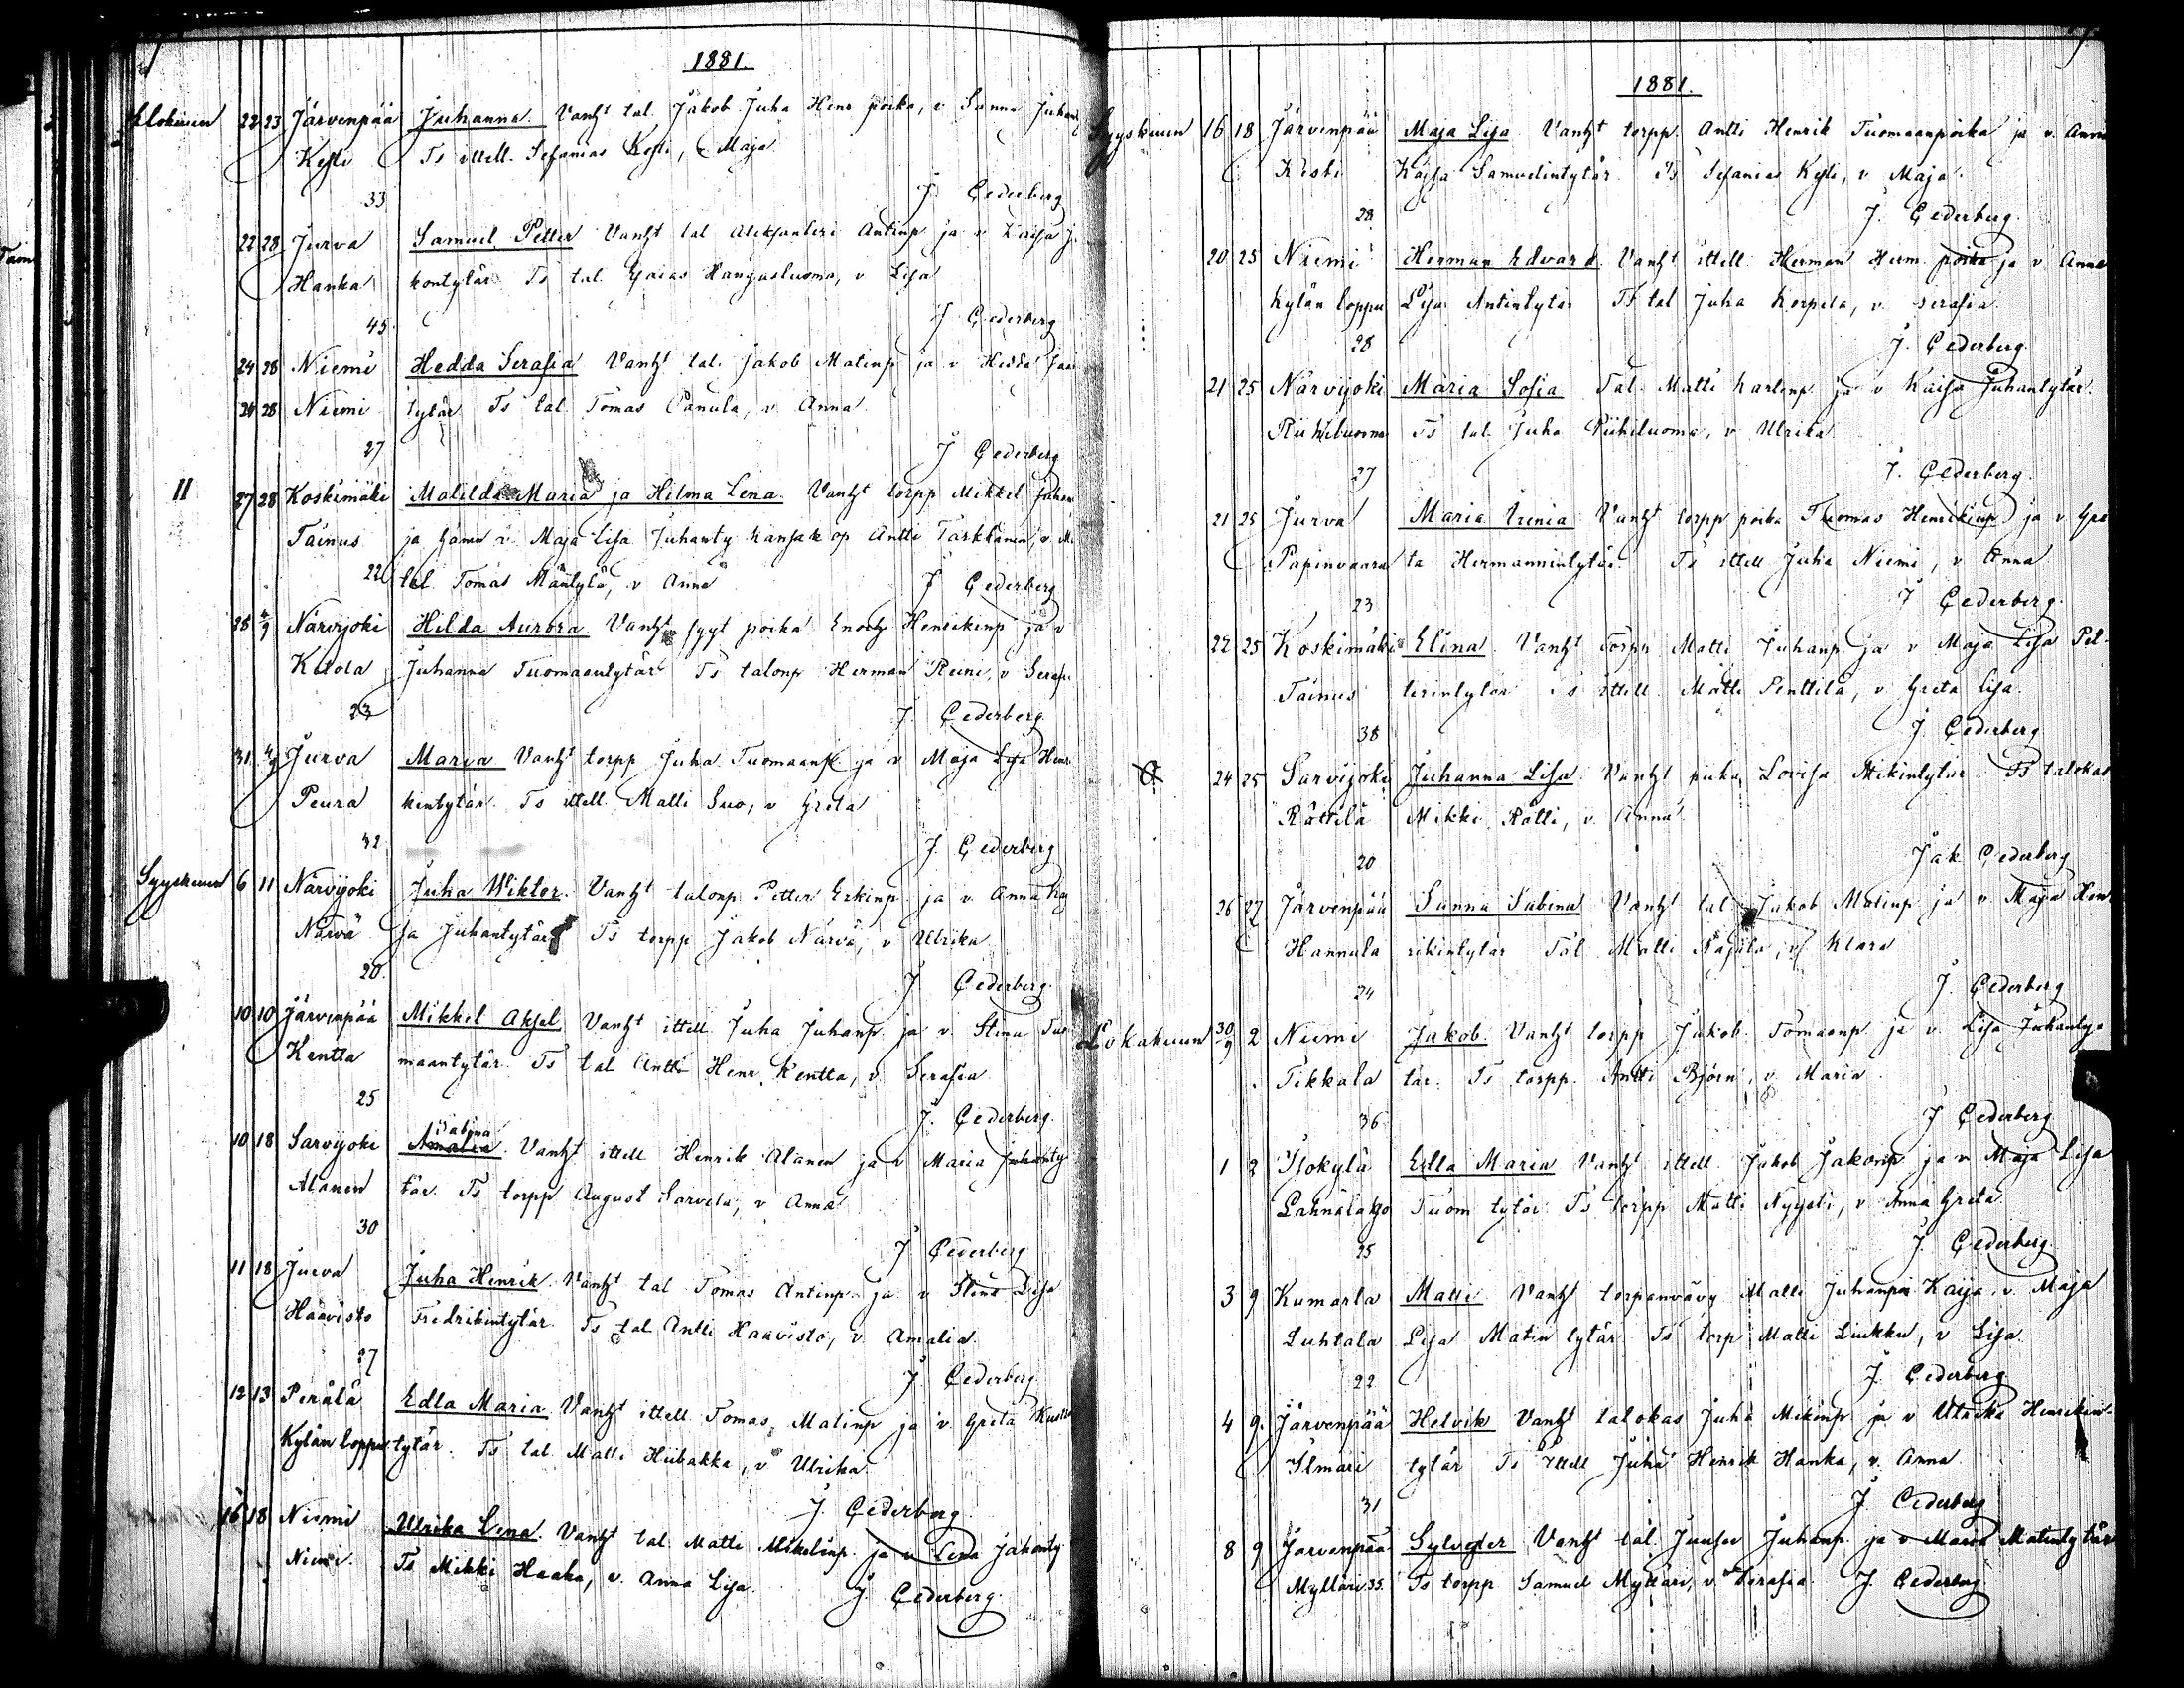 1881.
Elokuun 22 23 Järvenpää Juhanna. Vanht tal. Jakob Juha Henr poika, v Sanna Juhan
Kesti Ts ittell. Sefanias Kesti, v Maja
33 J. Cederberg
22 28 Jurva Samuel Petter Vanht tal Aleksanteri Antinp ja v Kaisa J.
Hanka kontytär Ts tal Esaias Hangasluoma, v Lisa
45. J Cederberg
24 28 Niemi Hedda Serafia Vanht tal. Jakob Matinp ja v Hedda Jaa
24 28 Niemi tytär Ts tal Tomas Panula, v Anna
27 J Cederberg
II 27 28 Koskimäki Matilda Maria ja Hilma Lena. Vanht torpp Mikkel Juhan
Tainus ja v. Maja Lisa Juhanty Antti Tarkkanen, v. M.
22 tal Tomas Mäntylä, v Anna J Cederberg
28 4/9 Närvijoki Hilda Aurora. Vanht syyt poika Enoch Henrikinp ja v
Ketola Juhanna Tuomaantytär Ts talonp Herman Reini, v Seraf
23 J. Cederberg.
31 4/9 Jurva Maria Vanht torpp Juha Tuomaanp ja v Maja Lisa Henr
Peura kintytär. Ts ittell. Matti Suo, v Greta
42. J. Cederberg
Syyskuun 6 11 Närvijoki Juha Wiktor. Vanht talonp Petter Erkinp ja v. Anna Kay
Närvä sa Juhantytär Ts torpp Jakob Närvä, v Ulrika
20. J Cederberg.
10 10 Järvenpää Mikkel Aksel Vanht ittell Juha Juhanp ja v. Stina Tuo
Kentta maantytär. Ts tal Antti Henr. Kentta, v. Serafia
25 J. Cederberg.
Sabina
10 18 Sarvijoki Amalia. Vanht ittell Henrik Alanen ja v Maria Juhanty
Alanen tär. Ts torpp August Sarvela, v Anna
30 J Cederberg
11 18 Jurva Juha Henrik. Vanht tal Tomas Antinp. ja v Stina Lisa
Haavisto Fredrikintytär. Ts tal Antti Haavisto, v. Amalia.
27 J. Cederberg.
12 13 Perälä Edla Maria. Vanht ittell Tomas Matinp ja v. Greta Kustaa
Kylänloppu tytär. Ts tal Matti Hiibakka, v Ulrika.
J. Cederberg.
16 18 Niemi Ulrika Lena. Vanht tal Matti Mikelinp. ja v Lena Jakonty
Niemi. Ts Mikki Haaka, v. Anna Lisa. J. Cederberg.
1881.
Syyskuun 16 18 Järvenpää Maja Lisa Vanht torpp. Antti Henrik Tuomaanpoika ja v. Anna
Kesti Kajsa Samuelintytär Ts Sefanias Kesti, v. Maja.
28 J. Cederberg.
20 25 Niemi Herman Edvard. Vanht ittell. Herman Herm. poika ja v. Anna
Kylän loppu Lisa Antintytär Ts tal Juha Korpela, v. Serafia
28 J. Cederberg.
21 25 Närvijoki Maria Sofia Tal. Matti Karlinp ja v Kaisa Juhantytär.
Riihiluoma Ts tal. Juha Riihiluoma, v Ulrika
27 J. Cederberg.
21 25 Jurva Maria Irenia Vanht torpp poika Tuomas Henrikinp ja v Gre
Papinvaara ta Hermannintytär. Ts ittell Juha Niemi, v Anna
23 J Cederberg.
22 25 Koskimäki Elina. Vanht Torpp Matti Juhanp ja v Maja Lisa Pet-
Tainus terintytär Ts ittell. Matti Penttilä, v. Greta Lisa.
38 J Cederberg
24 25 Sarvijoki Juhanna Lisa Vanht piika Lovisa Mikintytär Ts talokas
Rättilä Mikki Rätti, v. Anna
20 Jak Cederberg
26 27 Järvenpää Sanna Sabina Vanht tal Jakob Matinp ja v Maja Hen
Hannula rikintytär Tal Matti Rajala, v Klara
24 J. Cederberg
Lokakuun 30/9 2 Niemi Jakob. Vanht torpp Jakob Tomaanp ja v. Lisa Juhanty
Tikkala tär. Ts torpp. Antti Björn, v Maria
36 J Cederberg
1 2 Isokylä Edla Maria Vanht ittell Jakob Jakonp ja v. Maja Lisa
Lahnalahjo Tuom tytär. Ts torpp Matti Nyysti, v Anna Greta.
25 J. Cederberg.
3 9 Kumarla Matti Vanht torpanvävy Matti Juhanp v. Maja
Luhtala Lisa Matin tytär Ts torp Matti Liukku, v Lisa.
22 J. Cederberg
4 9. Järvenpää Helvik Vanht talokas Juha Mikinp ja v Ulrika Henrikin-
Ilmari tytär Ts Ittell Juha Henrik Hanka, v. Anna
31 J Cederberg
8 9 Järvenpää Sylvester Vanht tal. Juuser Juhanp ja v Maria Matintytär
Mylläri 35. Ts torpp Samuel Mylläri, v Serafia. J. Cederberg